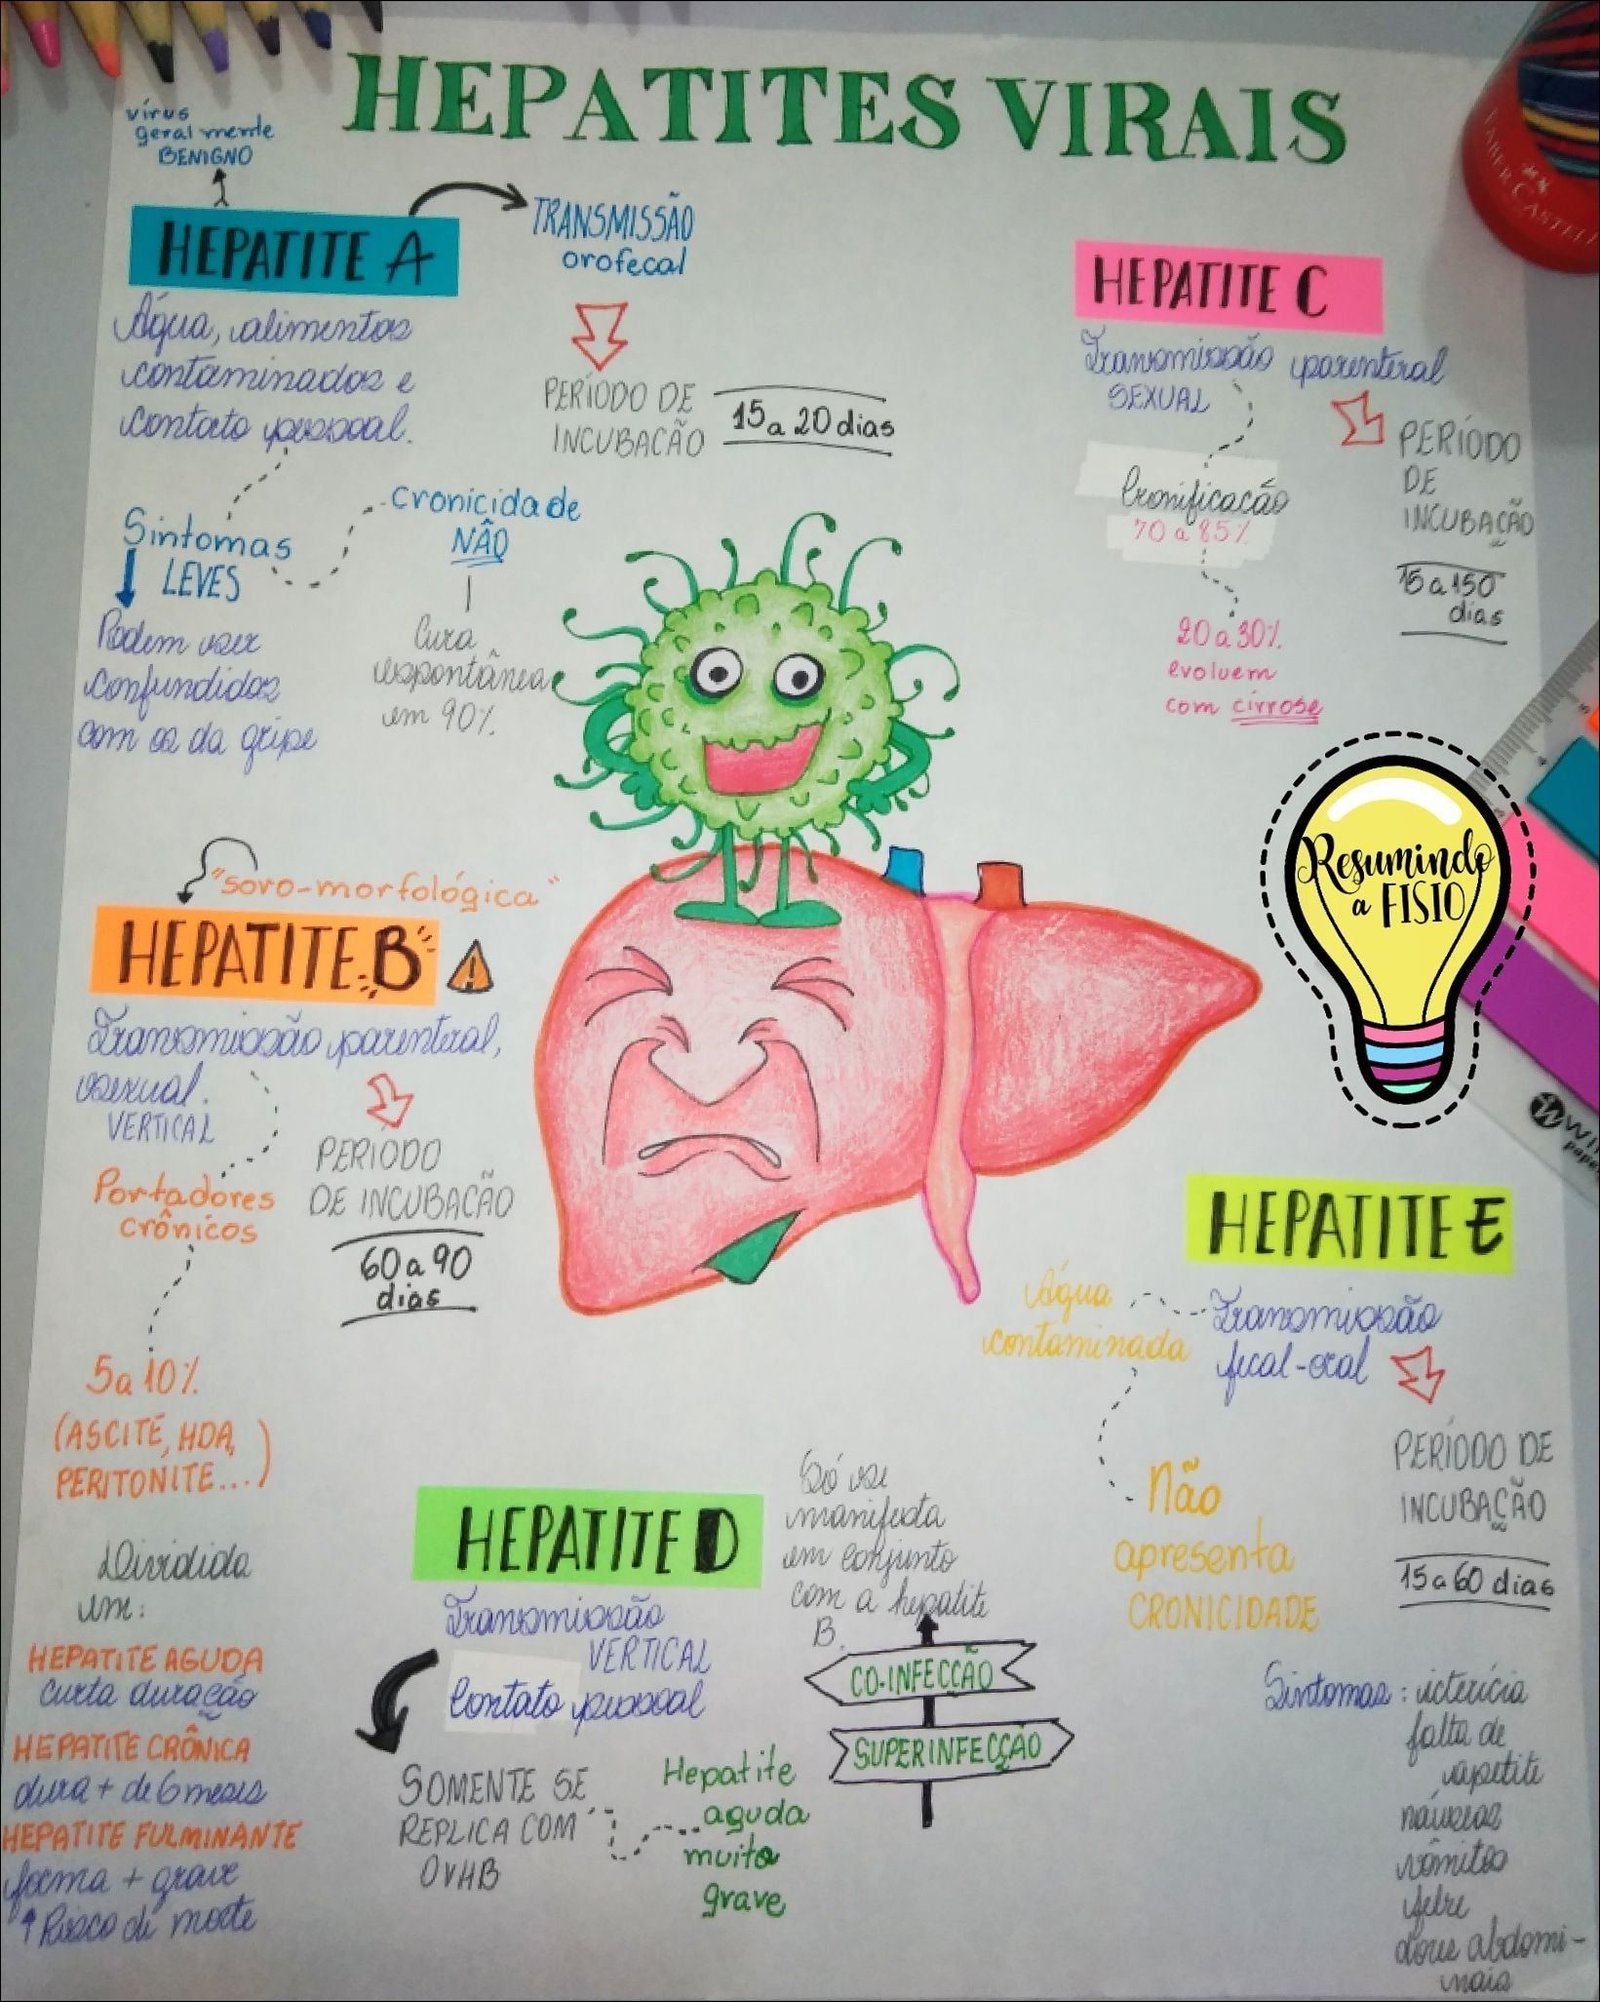 HEPATITES VIRAIS
vírus
geralmente
BENIGNO
HEPATITE A
TRANSMISSÃO
orofecal
Água, alimentos
contaminados e
contato pessoal.
PERÍODO DE
INCUBACÃO
15 a 20 dias
Sintomas
LEVES
Cronicidade
NÃO
Podem ser
confundidos
com os da gripe
Cura
espontânea
em 90%.
HEPATITE C
Transmissão parenteral
SEXUAL
PERÍODO
DE
INCUBAÇÃO
15 a 150
dias
Cronificação
70 a 85%
20 a 30%
evoluem
com cirrose
Resumindo
a FISIO
"soro-morfológica"
HEPATITE B
Transmissão parenteral,
sexual.
VERTICAL
PERIODO
DE INCUBACÃO
60 a 90
dias
Portadores
crônicos
5 a 10%
(ASCITE, HDA,
PERITONITE...)
Dividida
em:
HEPATITE AGUDA
curta duração
HEPATITE CRÔNICA
dura + de 6 meses
HEPATITE FULMINANTE
forma + grave
↑ Risco de morte
HEPATITE D
Transmissão
VERTICAL
Contato pessoal
SOMENTE SE
REPLICA COM
O VHB
Hepatite
aguda
muito
grave
Só se
manifesta
em conjunto
com a hepatite
B.
CO-INFECÇÃO
SUPERINFECÇÃO
HEPATITE E
Transmissão
fecal-oral
Água
contaminada
Não
apresenta
CRONICIDADE
PERÍODO DE
INCUBAÇÃO
15 a 60 dias
Sintomas: icterícia
falta de
apetite
náuseas
vômitos
febre
dores abdomi-
nais
FABER CASTELL